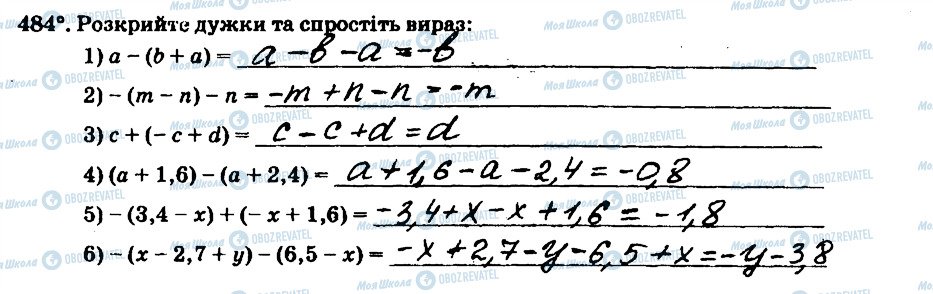 484°. Розкрийте дужки та спростіть вираз:
1) a − (b + a) = a − b − a = −b
2) − (m − n) − n = −m + n − n = −m
3) c + (− c + d) = c − c + d = d
4) (a + 1,6) − (a + 2,4) = a + 1,6 − a − 2,4 = −0,8
5) − (3,4 − x) + (− x + 1,6) = −3,4 + x − x + 1,6 = −1,8
6) − (x − 2,7 + y) − (6,5 − x) = −x + 2,7 − y − 6,5 + x = −y − 3,8